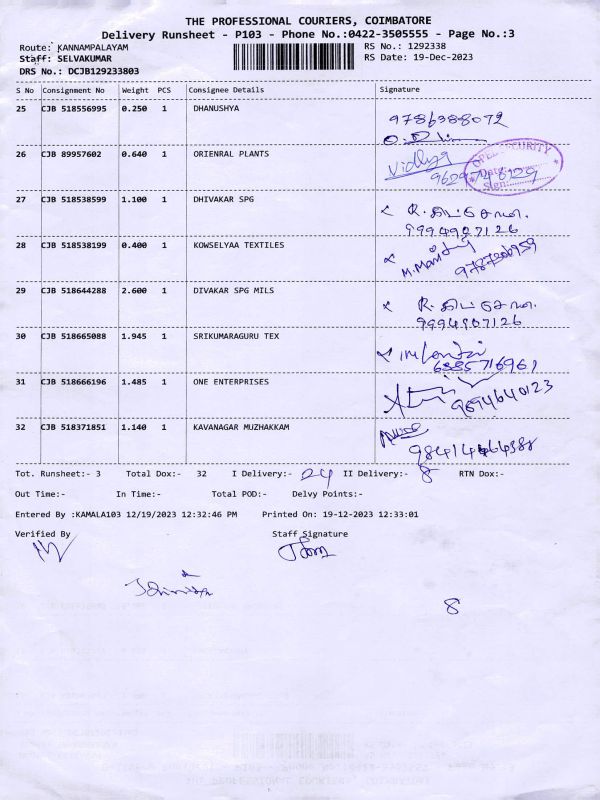 THE PROFESSIONAL COURIERS, COIMBATORE
Delivery Runsheet - P103 - Phone No.:0422-3505555 - Page No.:3
Route: KANNAMPALAYAM RS No.: 1292338
Staff: SELVAKUMAR RS Date: 19-Dec-2023
DRS No.: DCJB129233803
S No Consignment No Weight PCS Consignee Details Signature
25 CJB 518556995 0.250 1 DHANUSHYA
9786388072
26 CJB 89957602 0.640 1 ORIENRAL PLANTS Vidhya
SECURITY
Date:
Sign:
27 CJB 518538599 1.100 1 DHIVAKAR SPG
9994907126
28 CJB 518538199 0.400 1 KOWSELYAA TEXTILES
29 CJB 518644288 2.600 1 DIVAKAR SPG MILS
9994907126
30 CJB 518665088 1.945 1 SRIKUMARAGURU TEX
6385716961
31 CJB 518666196 1.485 1 ONE ENTERPRISES
9894640123
32 CJB 518371851 1.140 1 KAVANAGAR MUZHAKKAM
Tot. Runsheet:- 3 Total Dox:- 32 I Delivery:- 24 II Delivery:- 8 RTN Dox:-
Out Time:- In Time:- Total POD:- Delvy Points:-
Entered By :KAMALA103 12/19/2023 12:32:46 PM Printed On: 19-12-2023 12:33:01
Verified By Staff Signature
8